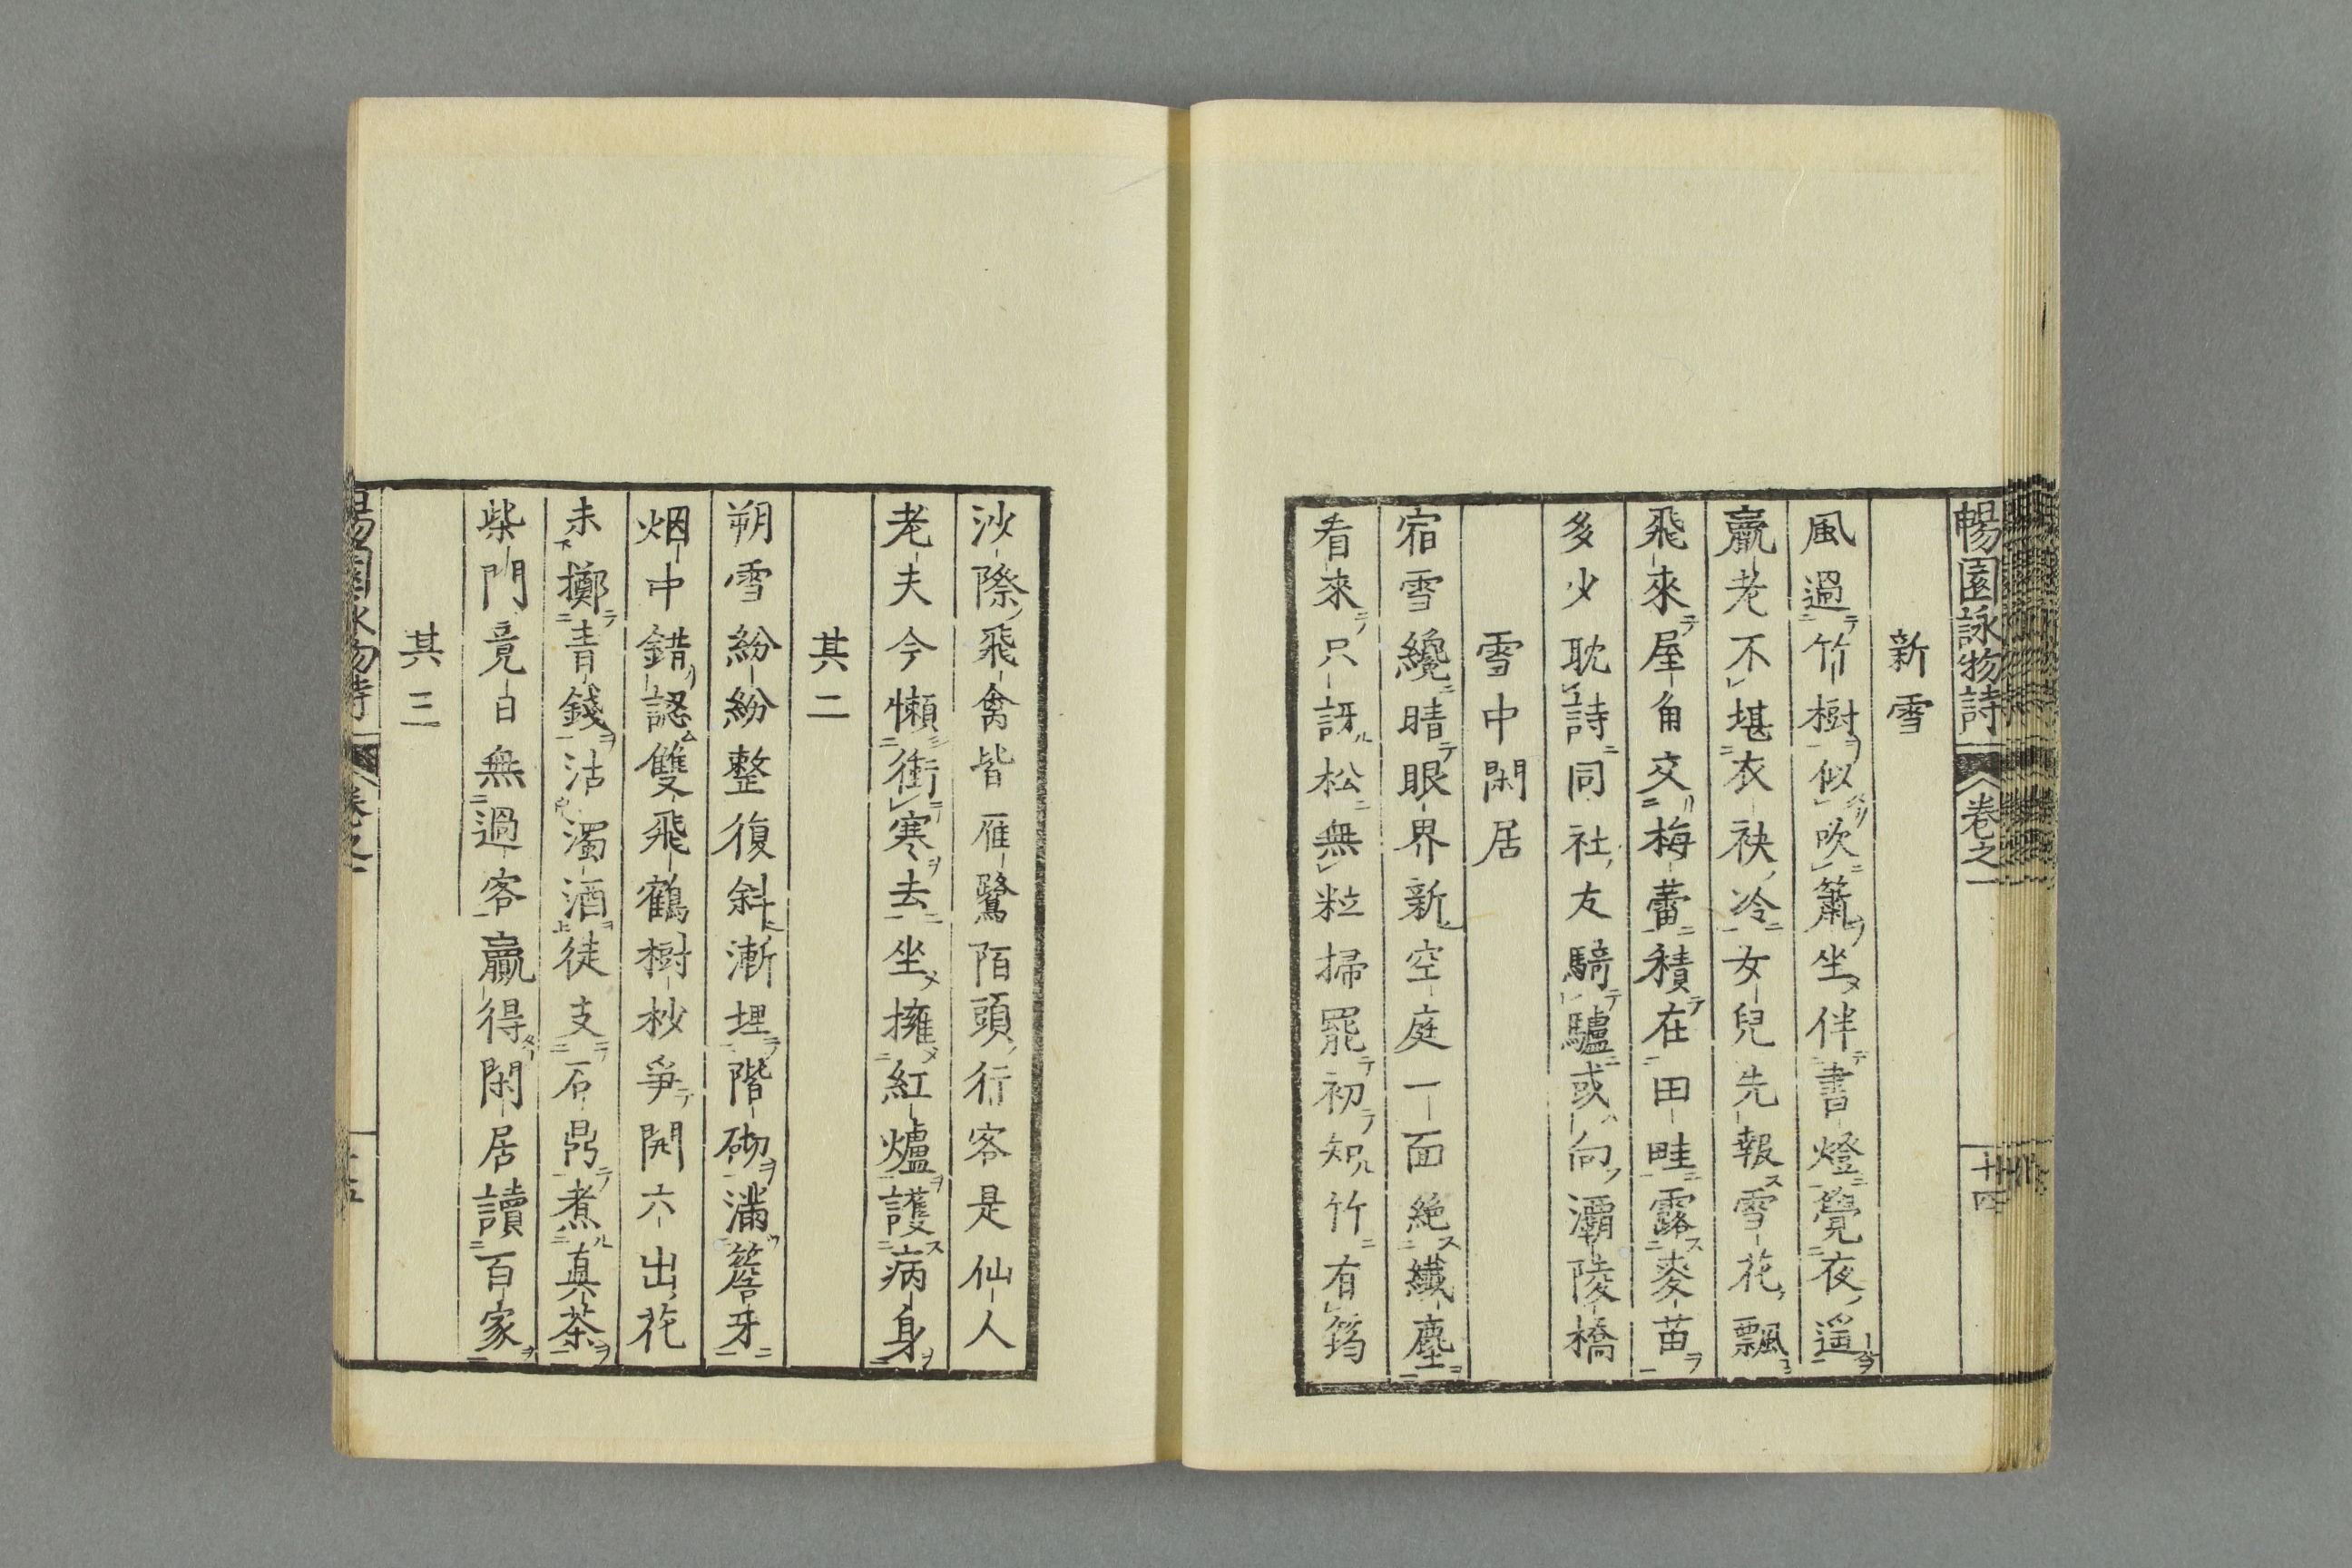 暢園詠物詩 卷之一 十四
新雪
風過竹樹似吹簫坐伴書燈覺夜遥
羸老不堪衣袂冷女兒先報雪花飄
飛來屋角交梅蕾積在田畦露麥苗
多少耽詩同社友騎驢或向灞陵橋
雪中閑居
宿雪纔晴眼界新空庭一面絶纎塵
看來只訝松無粒掃罷初知竹有筠
沙際飛禽皆雁鷺陌頭行客是仙人
老夫今懶衝寒去坐擁紅爐護病身
其二
朔雪紛紛整復斜漸埋階砌滿簷牙
烟中錯認雙飛鶴樹杪爭開六出花
未擲青錢沽濁酒徒支石鼎煮真茶
柴門竟日無過客贏得閑居讀百家
其三
暢園詠物詩 卷之一 十五